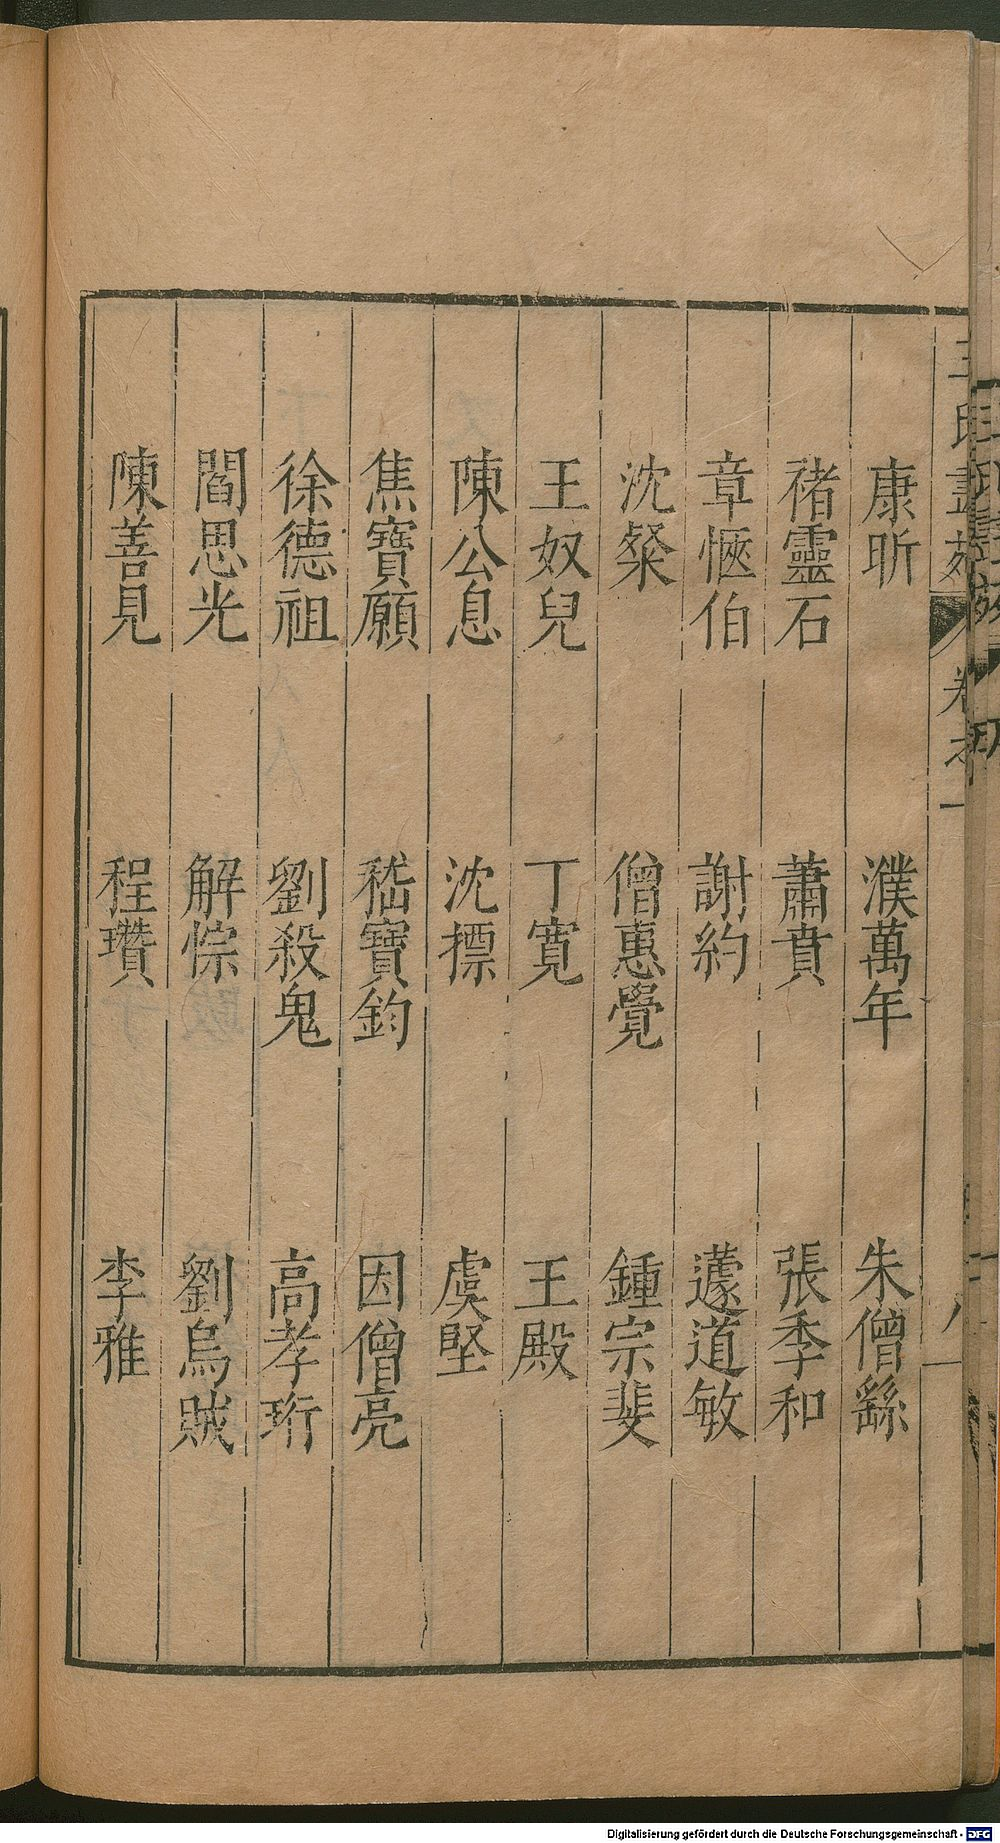 康昕 濮萬年 朱僧繇
褚靈石 蕭賁 張季和
章惬伯 謝約 蘧道敏
沈粲 僧惠覺 鍾宗斐
王奴兒 丁寬 王殿
陳公息 沈摽 虞堅
焦寶願 嵇寶鈞 因僧亮
徐德祖 劉殺鬼 高孝珩
閻思光 解悰 劉烏賊
陳善見 程瓚 李雅
Digitalisierung gefördert durch die Deutsche Forschungsgemeinschaft - DFG